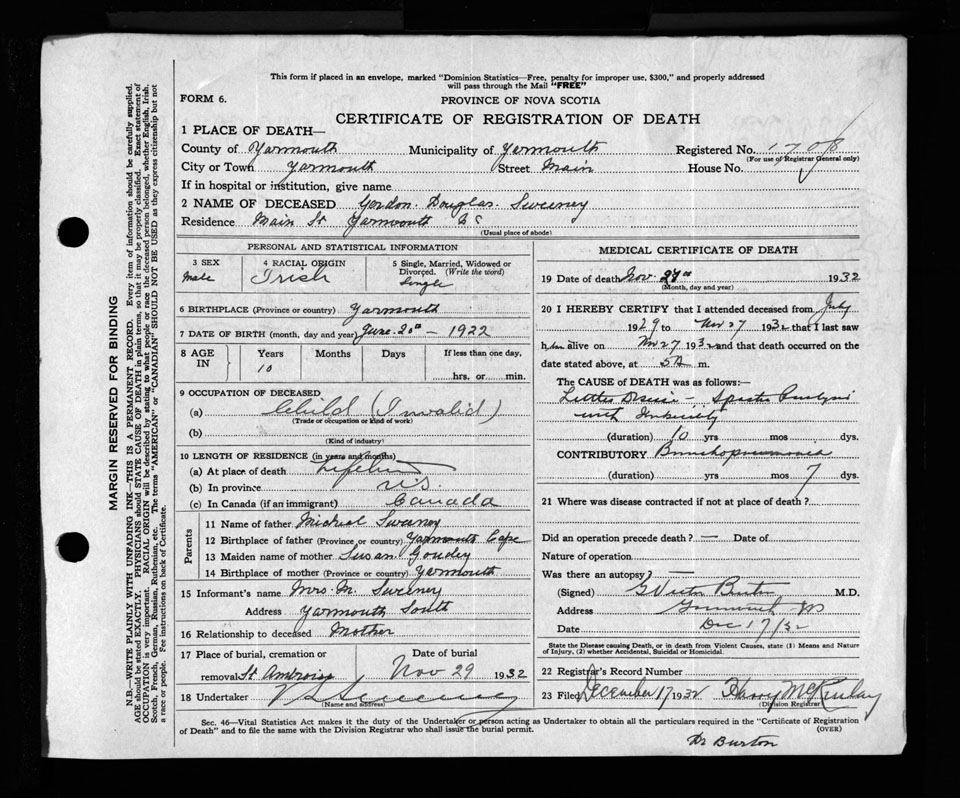 This form if placed in an envelope, marked "Dominion Statistics—Free, penalty for improper use, $300," and properly addressed
will pass through the Mail "FREE"
FORM 6.
PROVINCE OF NOVA SCOTIA
CERTIFICATE OF REGISTRATION OF DEATH
1 PLACE OF DEATH—
County of Yarmouth Municipality of Yarmouth Registered No.
(For use of Registrar General only)
City or Town Yarmouth Street Main House No.
If in hospital or institution, give name
2 NAME OF DECEASED Gordon Douglas Sweeney
Residence Main St Yarmouth
(Usual place of abode)
PERSONAL AND STATISTICAL INFORMATION
3 SEX
Male
4 RACIAL ORIGIN
Irish
5 Single, Married, Widowed or
Divorced. (Write the word)
Single
6 BIRTHPLACE (Province or country) Yarmouth
7 DATE OF BIRTH (month, day and year) June 20th - 1922
8 AGE
IN
Years
10
Months
Days
If less than one day,
hrs. or min.
9 OCCUPATION OF DECEASED
(a) Child (Invalid)
(Trade or occupation or kind of work)
(b)
(Kind of industry)
10 LENGTH OF RESIDENCE (in years and months)
(a) At place of death
(b) In province N.S.
(c) In Canada (if an immigrant) Canada
Parents
11 Name of father Micheal Sweeney
12 Birthplace of father (Province or country) Yarmouth Cape
13 Maiden name of mother Susan Goudey
14 Birthplace of mother (Province or country) Yarmouth
15 Informant's name Mrs. M. Sweeney
Address Yarmouth South
16 Relationship to deceased Mother
17 Place of burial, cremation or
removal St Ambroise
Date of burial
Nov 29 1932
18 Undertaker V S Sweeney
(Name and address)
MEDICAL CERTIFICATE OF DEATH
19 Date of death Nov. 27th 1932
(Month, day and year)
20 I HEREBY CERTIFY that I attended deceased from July
1929 to Nov 27 1932 that I last saw
him alive on Nov 27 1932 and that death occurred on the
date stated above, at 5 A m.
The CAUSE OF DEATH was as follows:—
Littles Disease - Spastic Paralysis
with Imbecility
(duration) 10 yrs mos dys.
CONTRIBUTORY Bronchopneumonia
(duration) yrs mos 7 dys.
21 Where was disease contracted if not at place of death?
Did an operation precede death? — Date of
Nature of operation
Was there an autopsy? —
(Signed) Burton M.D.
Address Yarmouth NS
Date Dec 17/32
State the Disease causing Death, or in death from Violent Causes, state (1) Means and Nature
of Injury, (2) whether Accidental, Suicidal or Homicidal.
22 Registrar's Record Number
23 Filed December 17 1932 Harry McKinlay
(Division Registrar)
Sec. 46—Vital Statistics Act makes it the duty of the Undertaker or person acting as Undertaker to obtain all the particulars required in the "Certificate of Registration
of Death" and to file the same with the Division Registrar who shall issue the burial permit.
(OVER)
Dr Burton
MARGIN RESERVED FOR BINDING
N.B.—WRITE PLAINLY WITH UNFADING INK—THIS IS A PERMANENT RECORD. Every item of information should be carefully supplied.
AGE should be stated EXACTLY. PHYSICIANS should STATE CAUSE OF DEATH in plain terms, so that it may be properly classified. Exact statement of
OCCUPATION is very important. RACIAL ORIGIN will be described by stating to what people or race the deceased person belonged, whether English, Irish,
Scotch, French, German, Russian, Ruthenian, etc. The terms "AMERICAN" or "CANADIAN" SHOULD NOT BE USED as they express citizenship but not
a race or people. Fee instructions on back of Certificate.